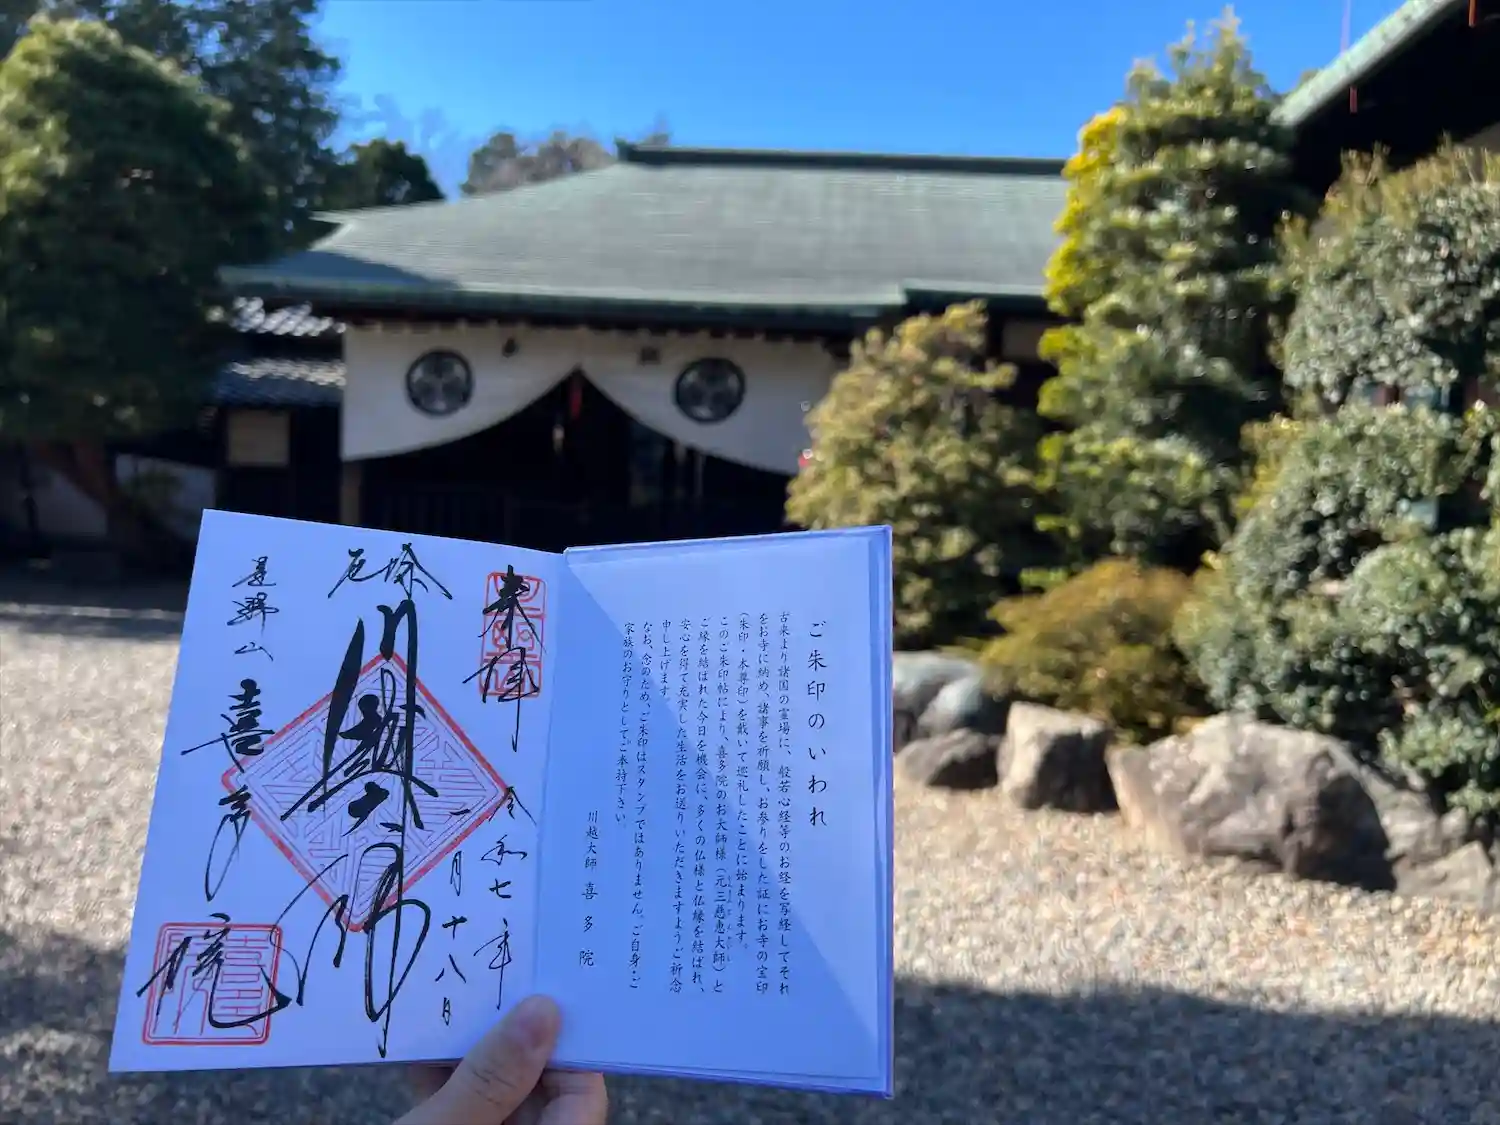 ご朱印のいわれ
古来より諸国の霊場に、般若心経等のお経を写経してそれ
をお寺に納め、諸事を祈願し、お参りをした証にお寺の宝印
(朱印・本尊印)を戴いて巡礼したことに始まります。
このご朱印帖により、喜多院のお大師様(元三慈恵大師)と
ご縁を結ばれた今日を機会に、多くの仏様と仏縁を結ばれ、
安心を得て充実した生活をお送りいただきますようご祈念
申し上げます。
なお、念のため、ご朱印はスタンプではありません。ご自身・ご
家族のお守りとしてご本持下さい。
川越大師 喜多院
奉拝
令和七年
一月十八日
厄除
川越大師
星野山
喜多院